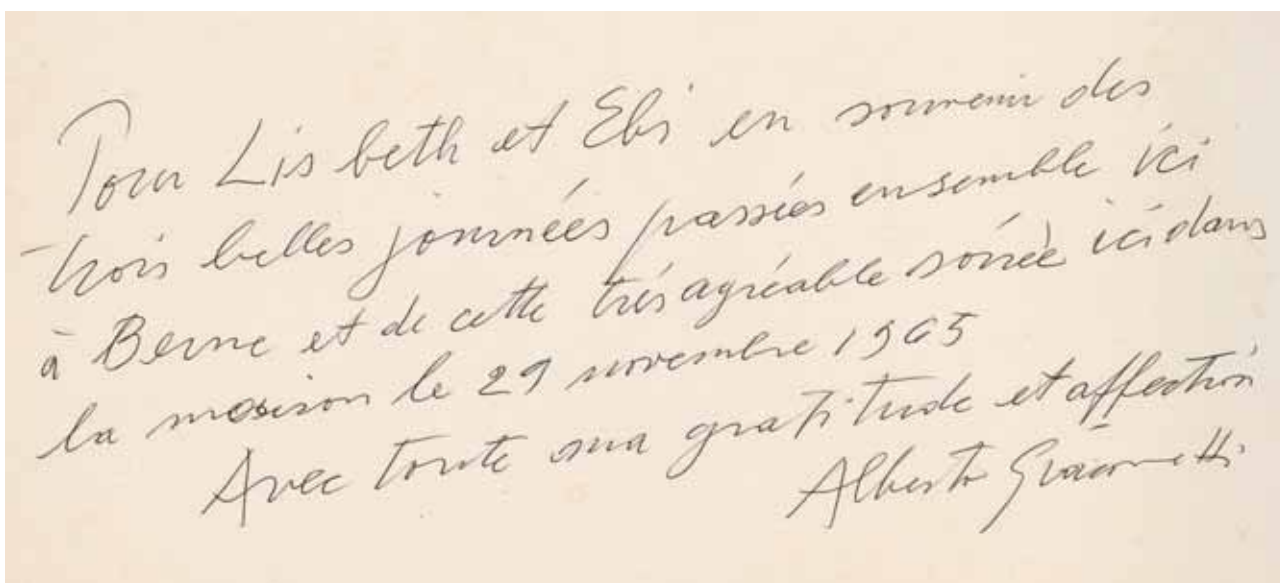 Pour Lisbeth et Ebi en souvenir des
trois belles journées passées ensemble ici
à Berne et de cette trés agréable soirée ici dans
la maison le 29 novembre 1965
Avec toute ma gratitude et affection
Alberto Giacometti